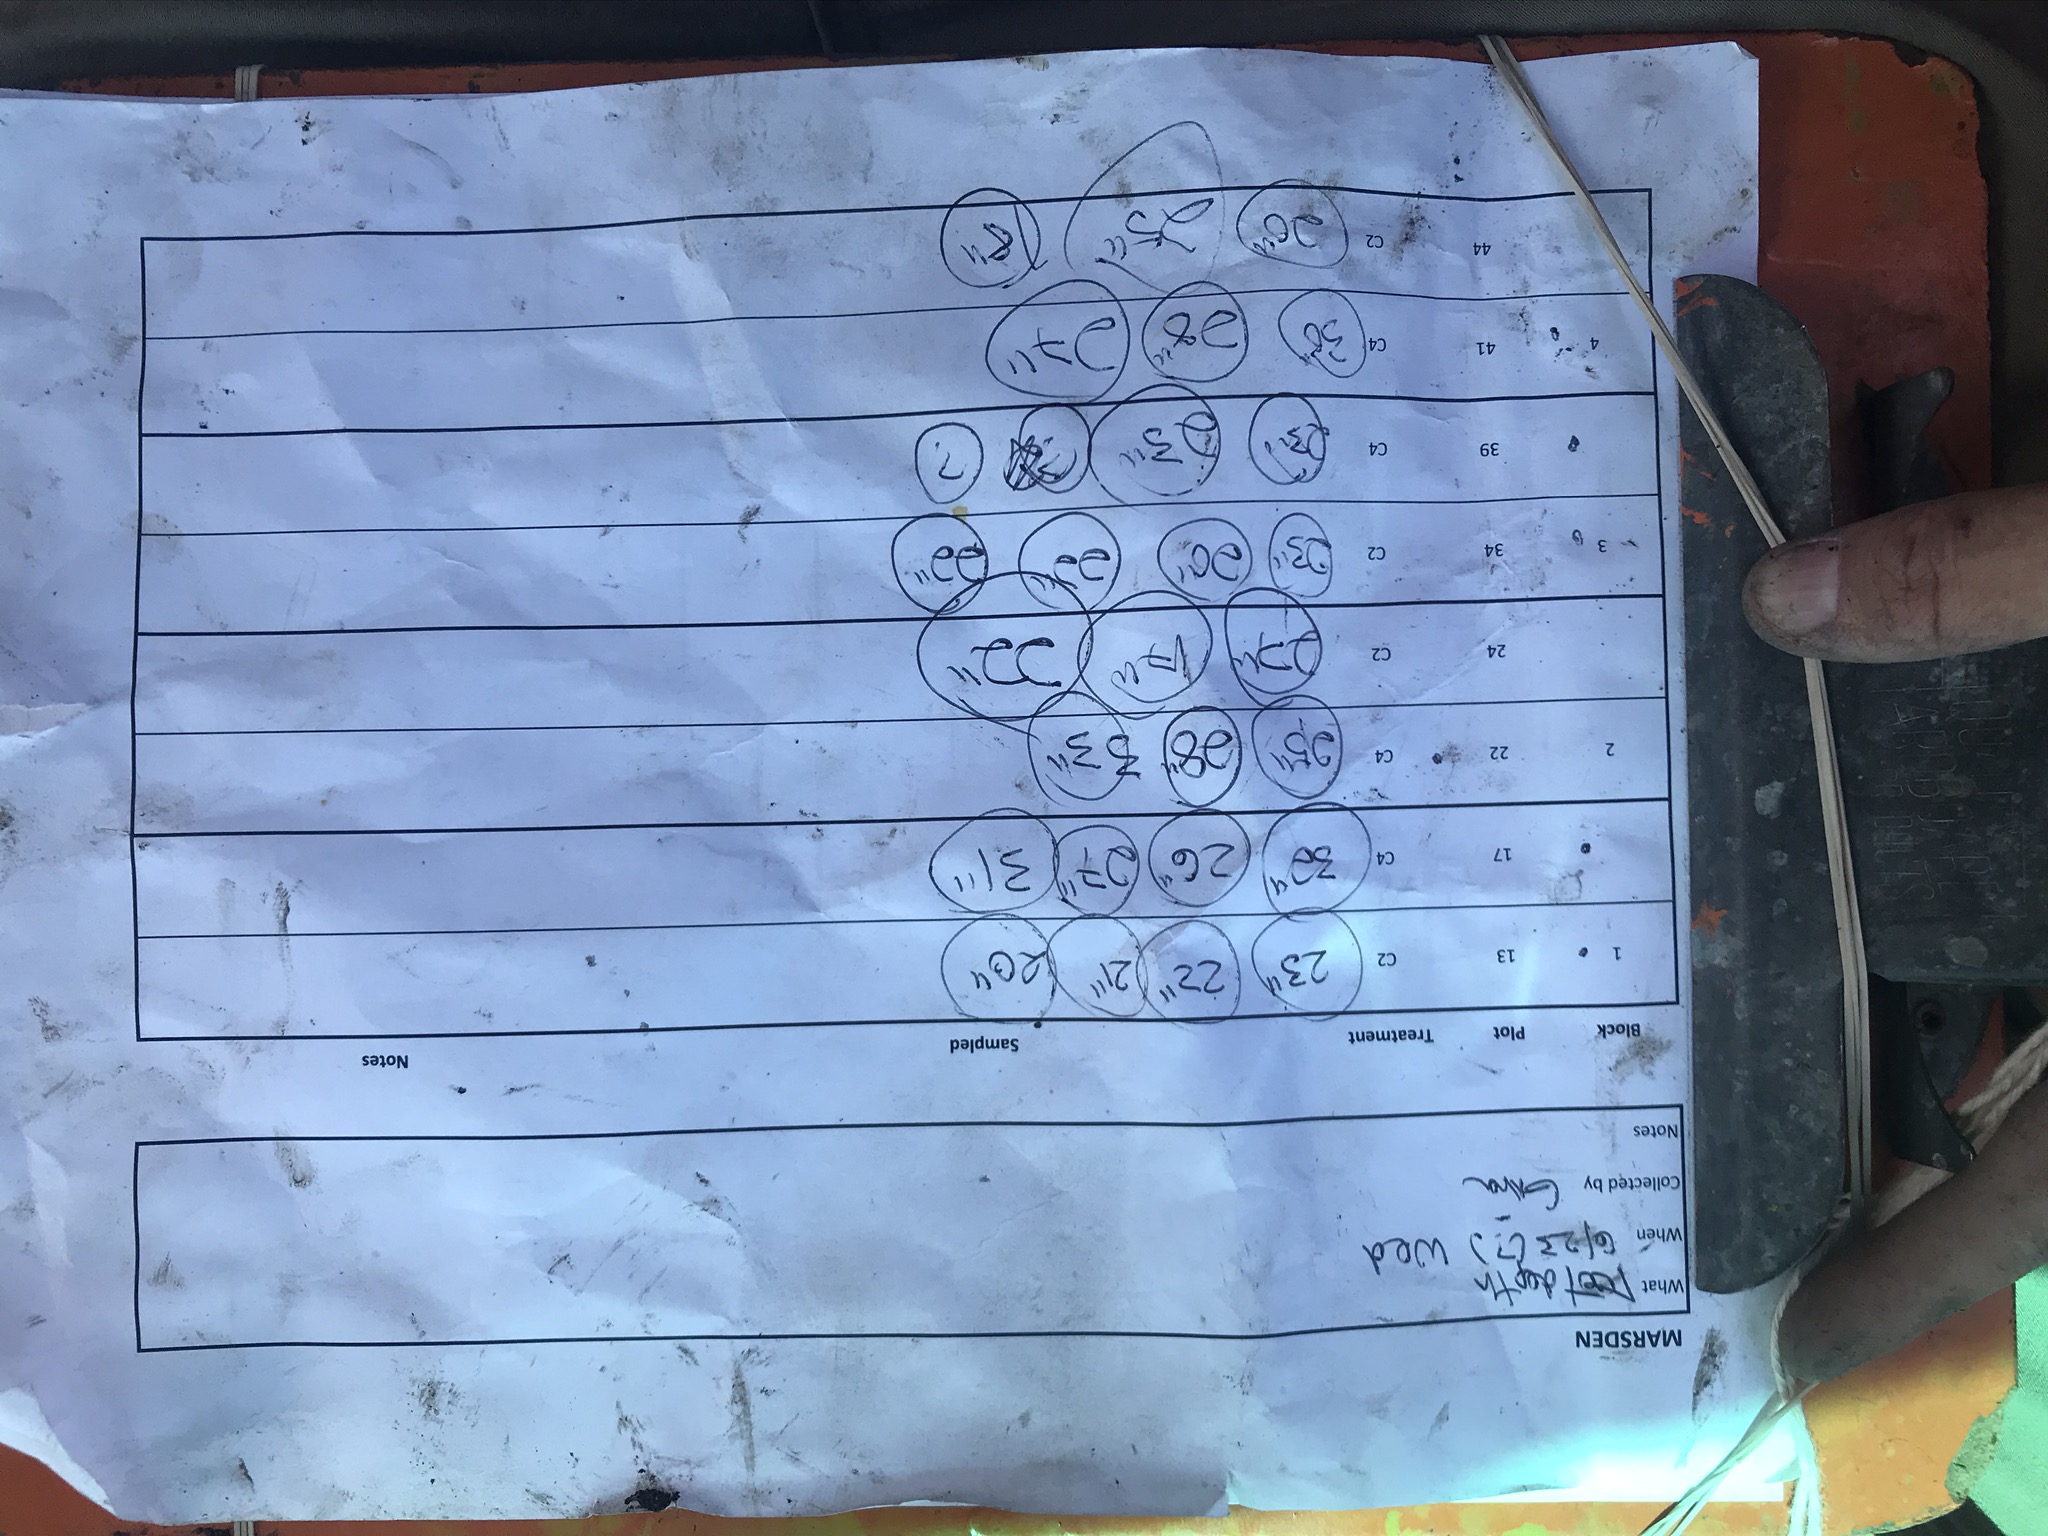 MARSDEN
What Root depth
When 6/23 (?) Wed
Collected by Gina
Notes
Block Plot Treatment Sampled Notes
1 13 C2 23" 22" 21" 20"
17 C4 30" 26" 27" 31"
2 22 C4 25" 28" 33"
24 C2 22" 17" 22"
3 34 C2 23" 20" 22" 22"
39 C4 23" 25" ?
4 41 C4 30" 28" 27"
44 C2 20" 25" 18"